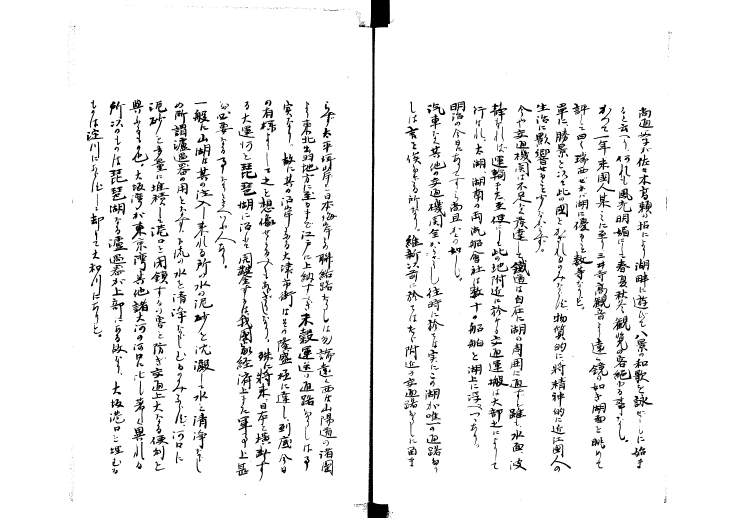 尚通公が佐々木高頼の招により湖畔に遊びて八景の和歌を詠ぜしに始まる
と云へり何れも風光明媚にして春夏秋冬観覧の客絶ゆる事なし
かつて一年米国人某こゝに至り三井寺高観音より遠く鏡の如き湖面を眺めて
評して曰く瑞西ゼネバ湖に優ること数等なりと
単に勝景として此の国をかざれるのみならず物質的に将精神的に近江国人の
生活に影響せること少なからず
今や交通機関は不足なく発達し鉄道は自在に湖の周囲を通ずと雖も水面波
静かなれば運輸また至便にして此の地附近に於ける交通運搬は大部之によりて
行はれ太湖湖南の両汽船会社は数十の船舶を湖上に浮べつゝあり
明治の今日にありてすら尚且かくの如し
汽車など其他の交通機関全からざりし往時に於ては実にこの湖が唯一の通路なり
しは言を俟たざる所なり維新以前に於てはたゞに附近の交通路なりしに由ま
らず太平洋岸と日本海岸との聯絡路なりしは勿論遠く西は山陽道の諸国
より東北は羽地方に至るまで江戸に上納すべき米穀運送の通路なりしは事
実なり故に其の沿岸なる大津市街はその隆盛極に達し到底今日
の有様よりして之を想像せらるべくもあらざりしなり殊に将来日本を横断す
る大運河を琵琶湖に沿せて開鑿するは我国家経済上また軍事上甚
必要となる事なりといへり
一般に山湖は其の注入し来れる所の水の泥砂を沈澱し水を清浄なし
め所謂濾過器の用をなすも流水を清浄ならしむるのみならず河口に
泥砂を多量に堆積して港口を閉鎖するの害を防ぎ交通上大なる便利を
与ふるもの也大坂湾が東京湾其他諸大河の河口に比し著しく異れる
所以のものは琵琶湖なる濾過器が上部にある故なり大坂港口を埋むる
ものは淀川にあらずして却て大和川にありと